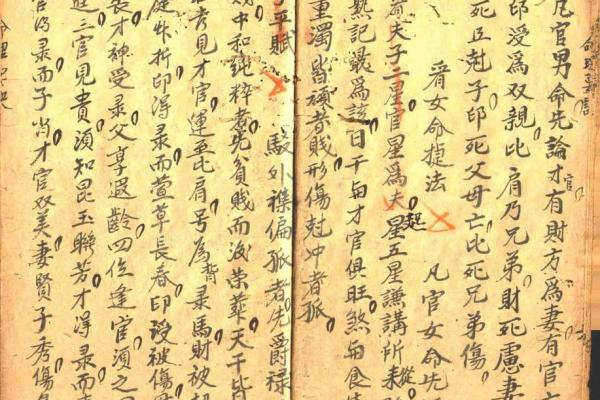 凡官男命先論才有財方為妻有官
官
印爱為双親比肩乃兄弟財死慮妻
死丘尅子印死父母亡比死兄弟傷
看女命捷法 凡官女命先
夫子二星官星為夫星五星謙講所来
起
從
熟記議為該日干旬才官俱旺煞旬食
重濁皆頑者賎形傷尅冲者孤
子平賦 駁外襟偏孤者先爵禄
中和純粹者先貧賎而後荣華天干皆
見才官運至比肩号為录馬財被
背
庭此折印得录而萱草長春印設被傷
長才神受录父享遐齡四位逢官須之
三官見貴須知昆玉聯芳才得录而
官得录而子肖才官双美妻賢子秀傷